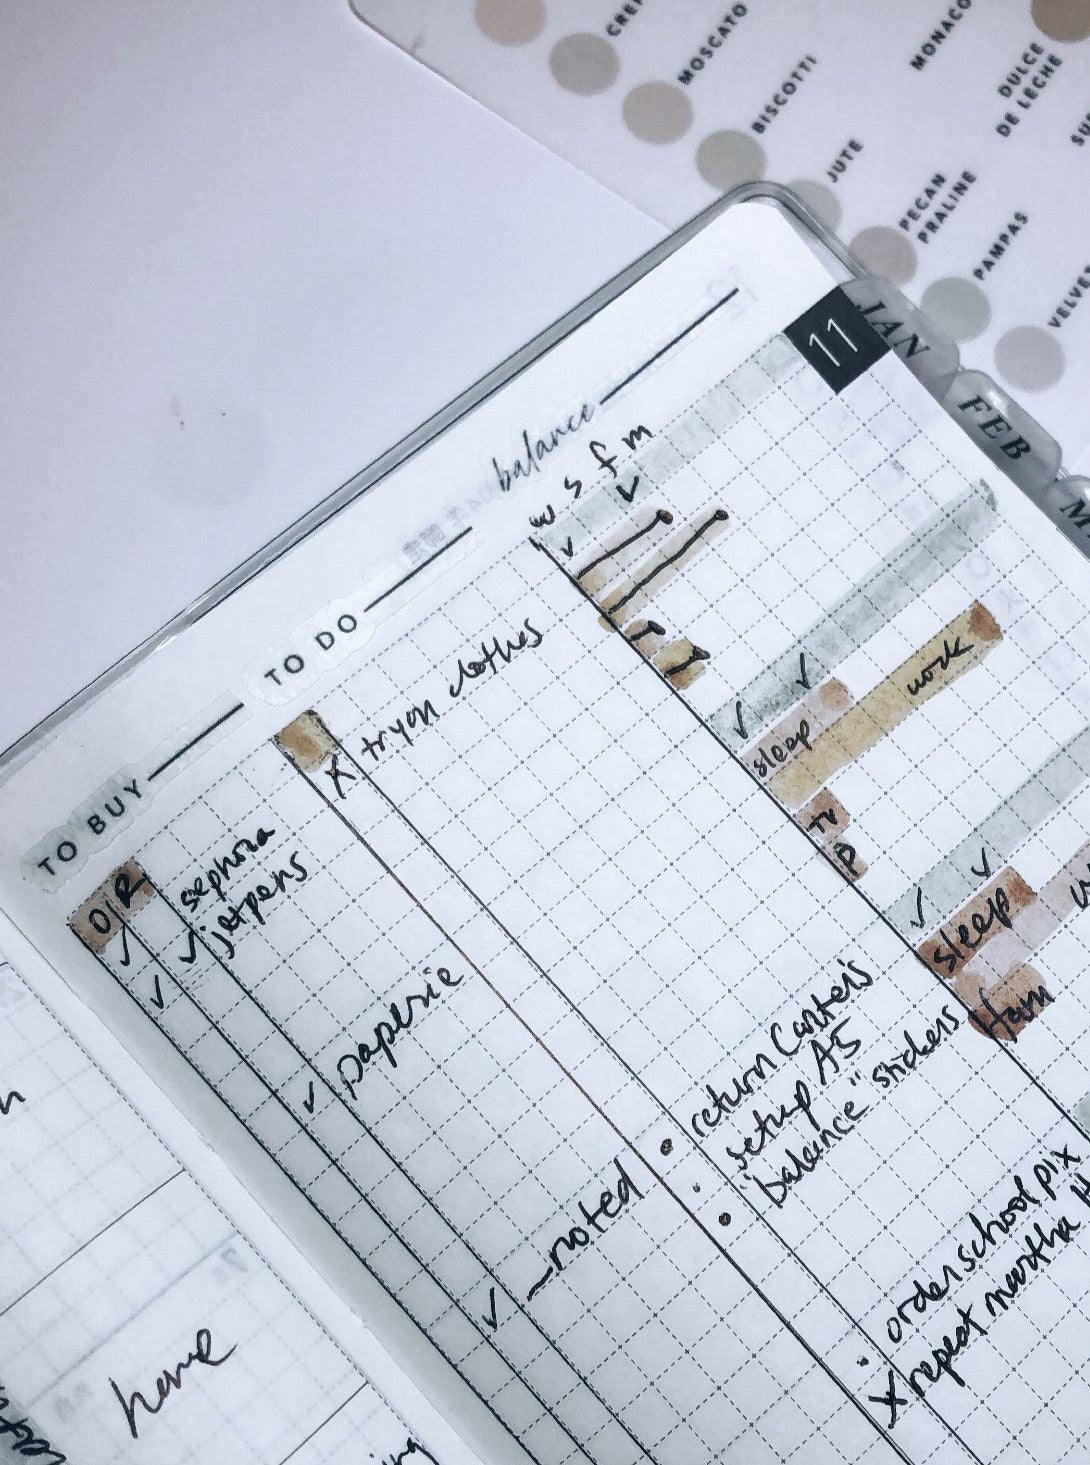 MOSCATO
BISCOTTI
JUTE
PECAN
PRALINE
PAMPAS
MONACO
DULCE
DE LECHE
11
JAN
FEB
TO BUY
TO DO
balance
O/R
sephora
jetpens
paperie
noted
x tryon clothes
• return Canters
• setup A5
• "balance" stickers
• order school pix
x repeat martha
w s f m
sleep
work
TV
P
sleep
home